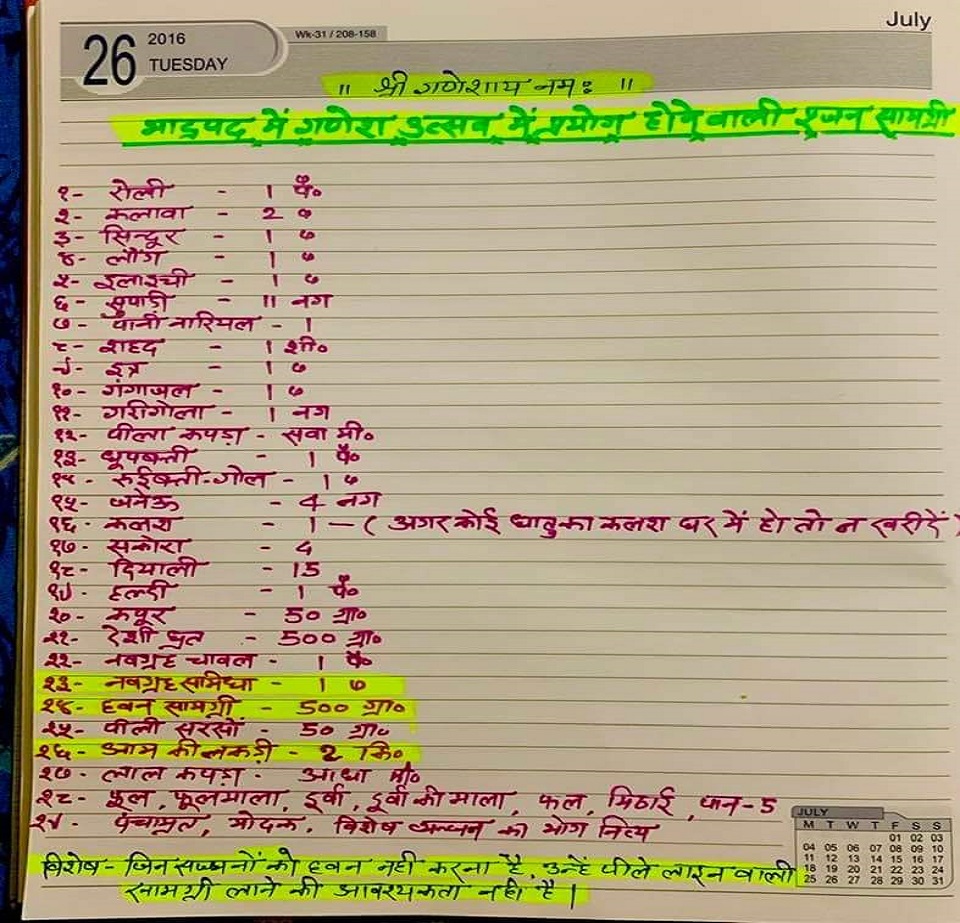 July
26 2016 TUESDAY
Wk-31 / 208-158
॥ श्री गणेशाय नमः ॥
भाद्रपद में गणेश उत्सव में प्रयोग होने वाली पूजन सामग्री
१- रोली - 1 पै०
२- कलावा - 2 "
३- सिन्दूर - 1 "
४- लौंग - 1 "
५- इलाइची - 1 "
६- सुपाड़ी - 11 नग
७- पानी नारियल - 1
८- शहद - 1 शी०
९- इत्र - 1 "
१०- गंगाजल - 1 "
११- गरीगोला - 1 नग
१२- पीला कपड़ा - सवा मी०
१३- धूपबत्ती - 1 पै०
१४- रुईबत्ती-गोल - 1 "
१५- जनेऊ - 4 नग
१६- कलश - 1 - ( अगर कोई धातु का कलश घर में हो तो न खरीदें )
१७- सकोरा - 4
१८- दियाली - 15
१९- हल्दी - 1 पै०
२०- कपूर - 50 ग्रा०
२१- देशी घृत - 500 ग्रा०
२२- नवग्रह चावल - 1 पै०
२३- नवग्रह समिधा - 1 "
२४- हवन सामग्री - 500 ग्रा०
२५- पीली सरसों - 50 ग्रा०
२६- आम की लकड़ी - 2 कि०
२७- लाल कपड़ा - आधा मी०
२८- फूल, फूलमाला, दूर्वा, दूर्वा की माला, फल, मिठाई, पान-5
२९- पंचामृत, मोदक, विशेष व्यन्जन का भोग नित्य
विशेष- जिन सज्जनों को हवन नहीं करना है, उन्हें पीले लाइन वाली
सामग्री लाने की आवश्यकता नहीं है।
JULY
M T W T F S S
01 02 03
04 05 06 07 08 09 10
11 12 13 14 15 16 17
18 19 20 21 22 23 24
25 26 27 28 29 30 31